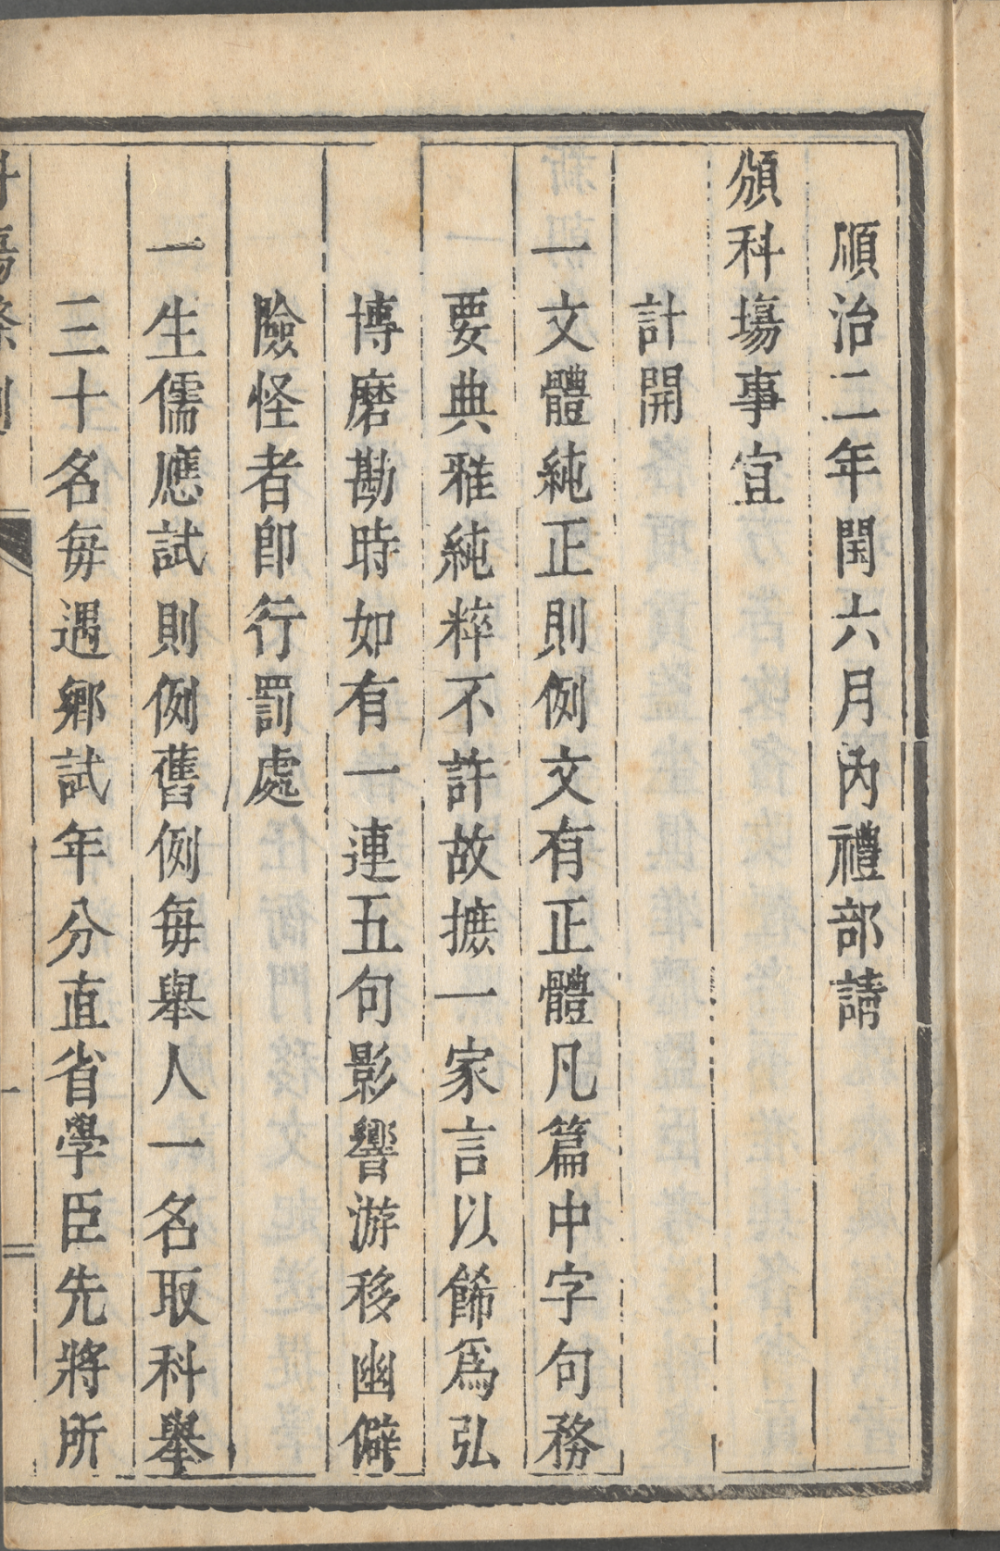 順治二年閏六月內禮部請
頒科塲事宜
計開
一文體純正則例文有正體凡篇中字句務
要典雅純粹不許故摭一家言以餙爲弘
博磨勘時如有一連五句影響游移幽僻
險怪者卽行罰處
一生儒應試則例舊例每舉人一名取科舉
三十名每遇鄉試年分直省學臣先將所
科塲條例
一